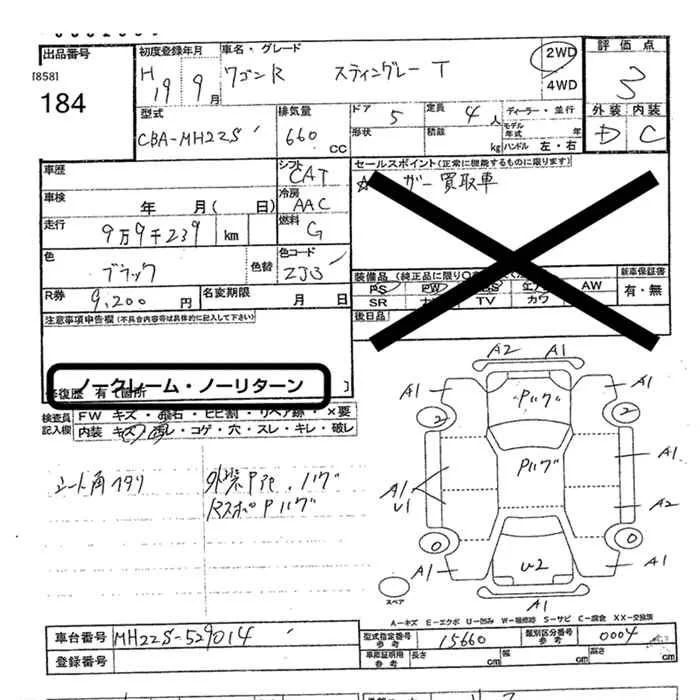 出品番号 初度登録年月 車名・グレード 2WD 評価点
[858] H 19 9月 ワゴンR スティングレー T 4WD 3
184 型式 排気量 ドア 5 定員 4人 ディーラー・並行 外装 内装
CBA-MH22S 660 CC 形状 積載 kg モデル年式 年 ハンドル 左・右 D C
車歴 シフト CAT セールスポイント(正常に機能するものに限ります)
車検 年 月( 日) 冷房 AAC 買取車
走行 9万9千239 km 燃料 G
色 ブラック 色替 色コード ZJ3 装備品 新車保証書
R券 9,200円 名変期限 月 日 PS PW AW 有・無
SR TV カワ
注意事項申告欄(不具合内容等は具体的に記入して下さい) 後日品
ノークレーム・ノーリターン
修復歴 有 箇所
検査員記入欄 FW キズ・飛石・ヒビ割・リペア跡・×要
内装 キズ・コゲ・穴・スレ・キレ・破レ
A2 A1
A1 P A1
2 2
シート角 外装 P A1
P A1 U1 A2
0 0
A1 U2 A1
スペア A1
A-キズ E-エクボ U-凹み W-補修跡 S-サビ C-腐食 XX-交換済
車台番号 MH22S-529014 型式指定番号参考 15660 類別区分番号参考 0004
登録番号 車庫証明用参考 長さ cm 幅 cm 高さ cm